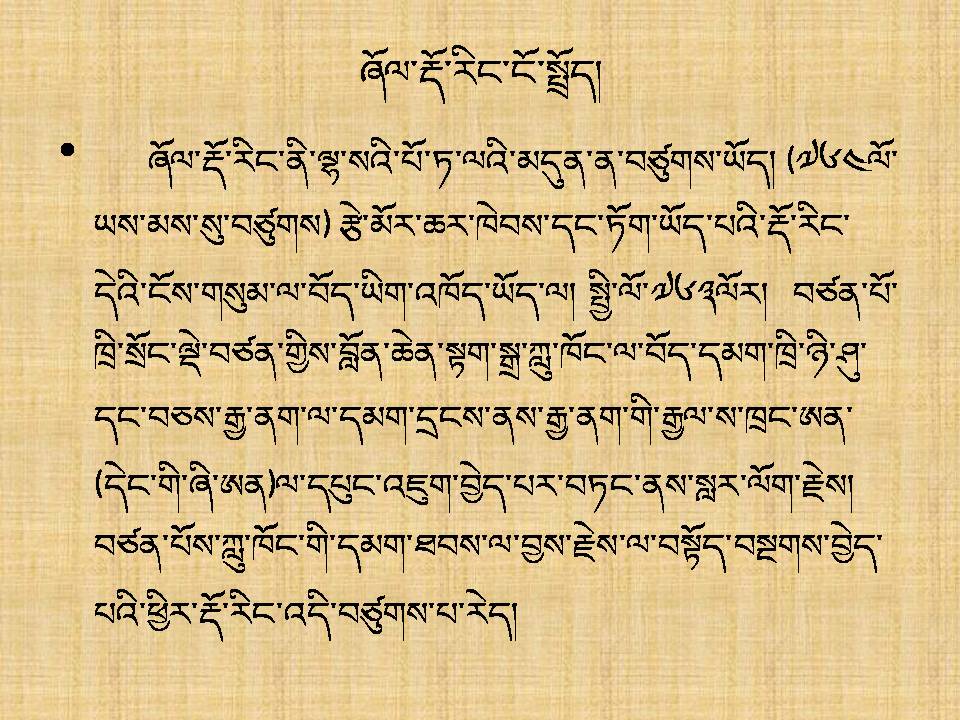 ཞོལ་རྡོ་རིང་ངོ་སྤྲོད།
• ཞོལ་རྡོ་རིང་ནི་ལྷ་སའི་པོ་ཏ་ལའི་མདུན་ན་བཙུགས་ཡོད། (༧༦༤ལོ་
ཡས་མས་སུ་བཙུགས) རྩེ་མོར་ཆར་ཁེབས་དང་ཏོག་ཡོད་པའི་རྡོ་རིང་
དེའི་ངོས་གསུམ་ལ་བོད་ཡིག་འཁོད་ཡོད་ལ། སྤྱི་ལོ་༧༦༣ལོར། བཙན་པོ་
ཁྲི་སྲོང་ལྡེ་བཙན་གྱིས་བློན་ཆེན་སྟག་སྒྲ་ཀླུ་ཁོང་ལ་བོད་དམག་ཁྲི་ཉི་ཤུ་
དང་བཅས་རྒྱ་ནག་ལ་དམག་དྲངས་ནས་རྒྱ་ནག་གི་རྒྱལ་ས་ཁྲང་ཨན་
(དེང་གི་ཞི་ཨན)ལ་དཔུང་འཇུག་བྱེད་པར་བཏང་ནས་སླར་ལོག་རྗེས།
བཙན་པོས་ཀླུ་ཁོང་གི་དམག་ཐབས་ལ་བྱས་རྗེས་ལ་བསྟོད་བསྔགས་བྱེད་
པའི་ཕྱིར་རྡོ་རིང་འདི་བཙུགས་པ་རེད།